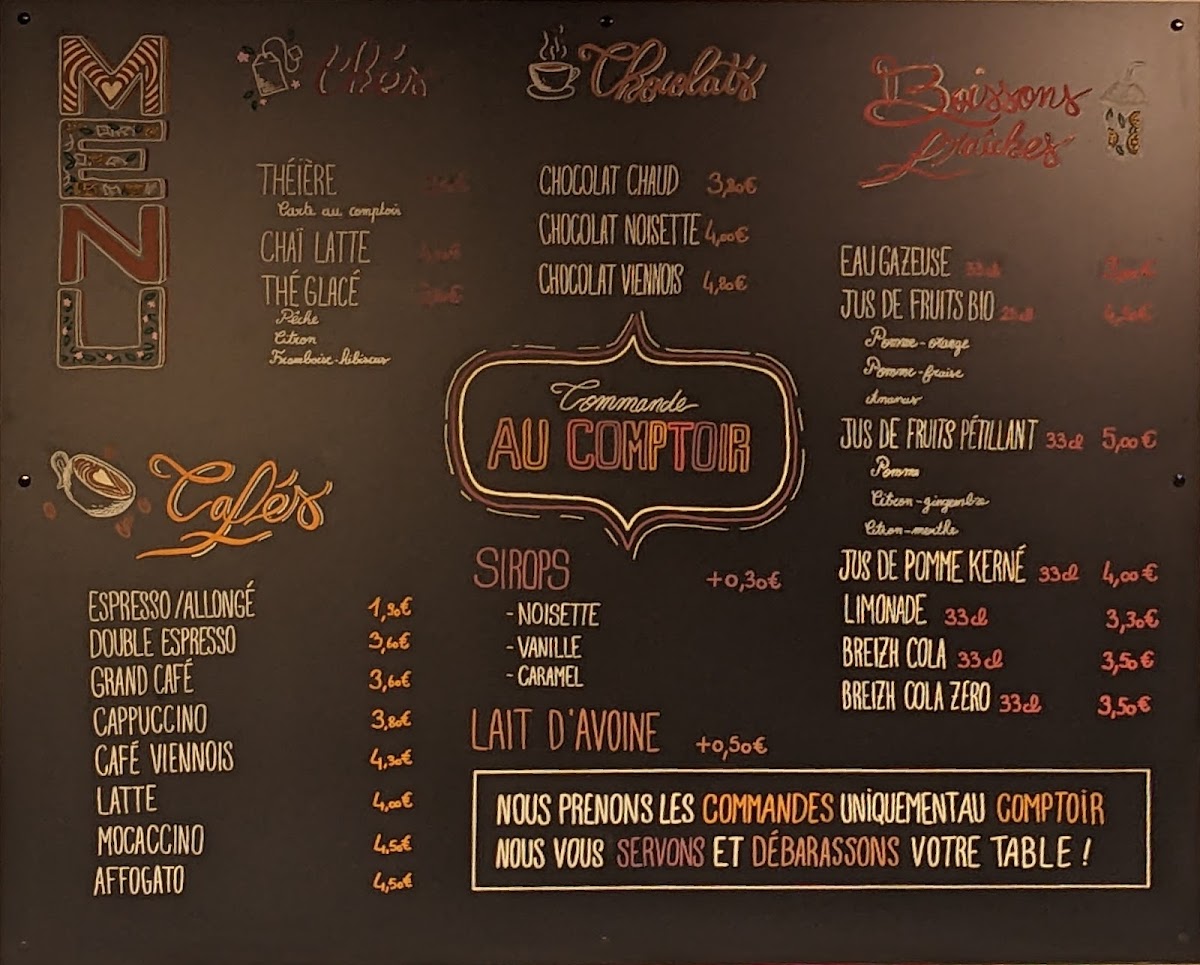 MENU
Thés
THÉIÈRE
Carte au comptoir
CHAÏ LATTE
THÉ GLACÉ
Pêche
Citron
Framboise-Hibiscus
Chocolats
CHOCOLAT CHAUD 3,80€
CHOCOLAT NOISETTE 4,00€
CHOCOLAT VIENNOIS 4,80€
Boissons
fraîches
EAU GAZEUSE 33cl
JUS DE FRUITS BIO 25cl
Pomme-orange
Pomme-fraise
Ananas
JUS DE FRUITS PÉTILLANT 33cl 5,00€
Pomme
Citron-gingembre
Citron-menthe
JUS DE POMME KERNÉ 33cl 4,00€
LIMONADE 33cl 3,30€
BREIZH COLA 33cl 3,50€
BREIZH COLA ZERO 33cl 3,50€
Commande
AU COMPTOIR
Cafés
ESPRESSO/ALLONGÉ 1,80€
DOUBLE ESPRESSO 3,60€
GRAND CAFÉ 3,60€
CAPPUCCINO 3,80€
CAFÉ VIENNOIS 4,30€
LATTE 4,00€
MOCACCINO 4,50€
AFFOGATO 4,50€
SIROPS +0,30€
- NOISETTE
- VANILLE
- CARAMEL
LAIT D'AVOINE +0,50€
NOUS PRENONS LES COMMANDES UNIQUEMENT AU COMPTOIR
NOUS VOUS SERVONS ET DÉBARASSONS VOTRE TABLE !